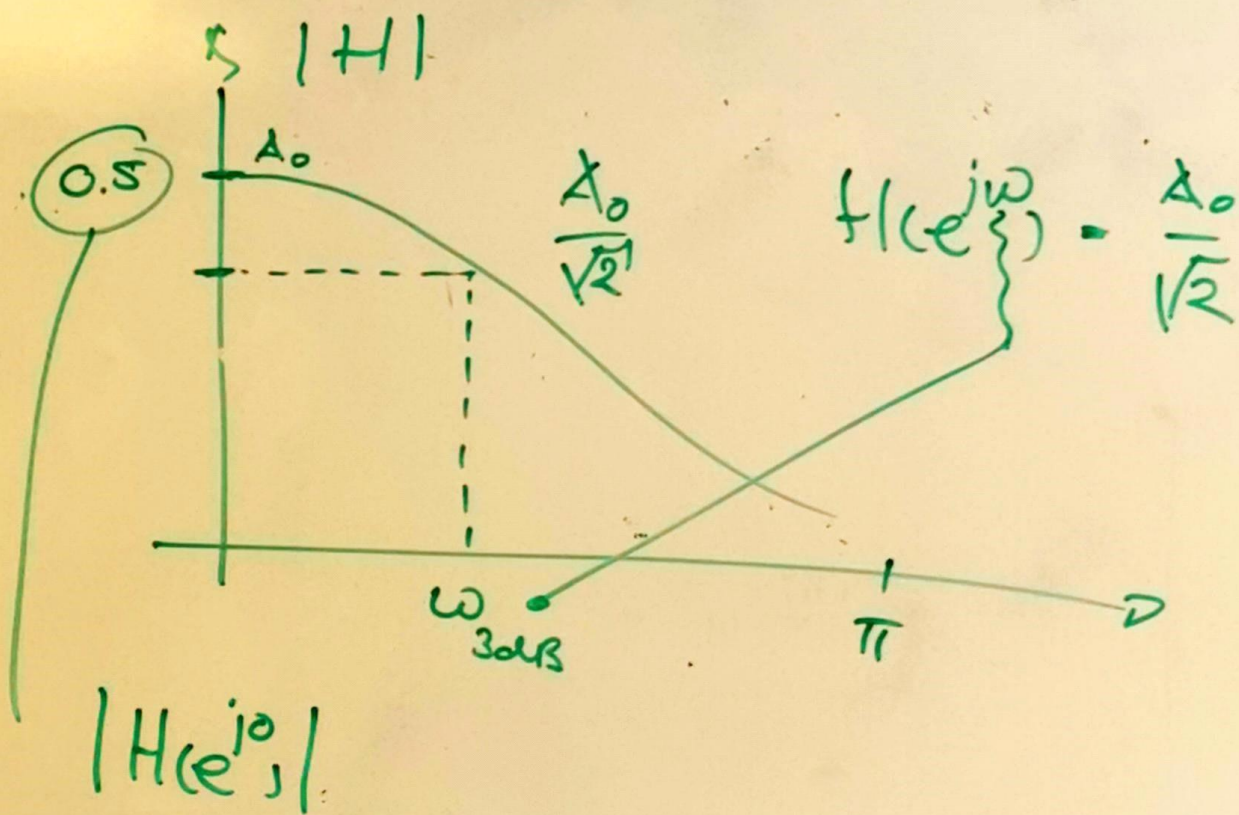 |H|
0.5
A₀
A₀/√2
H(e^{jω}) = A₀/√2
ω_{3dB}
π
|H(e^{j0})|